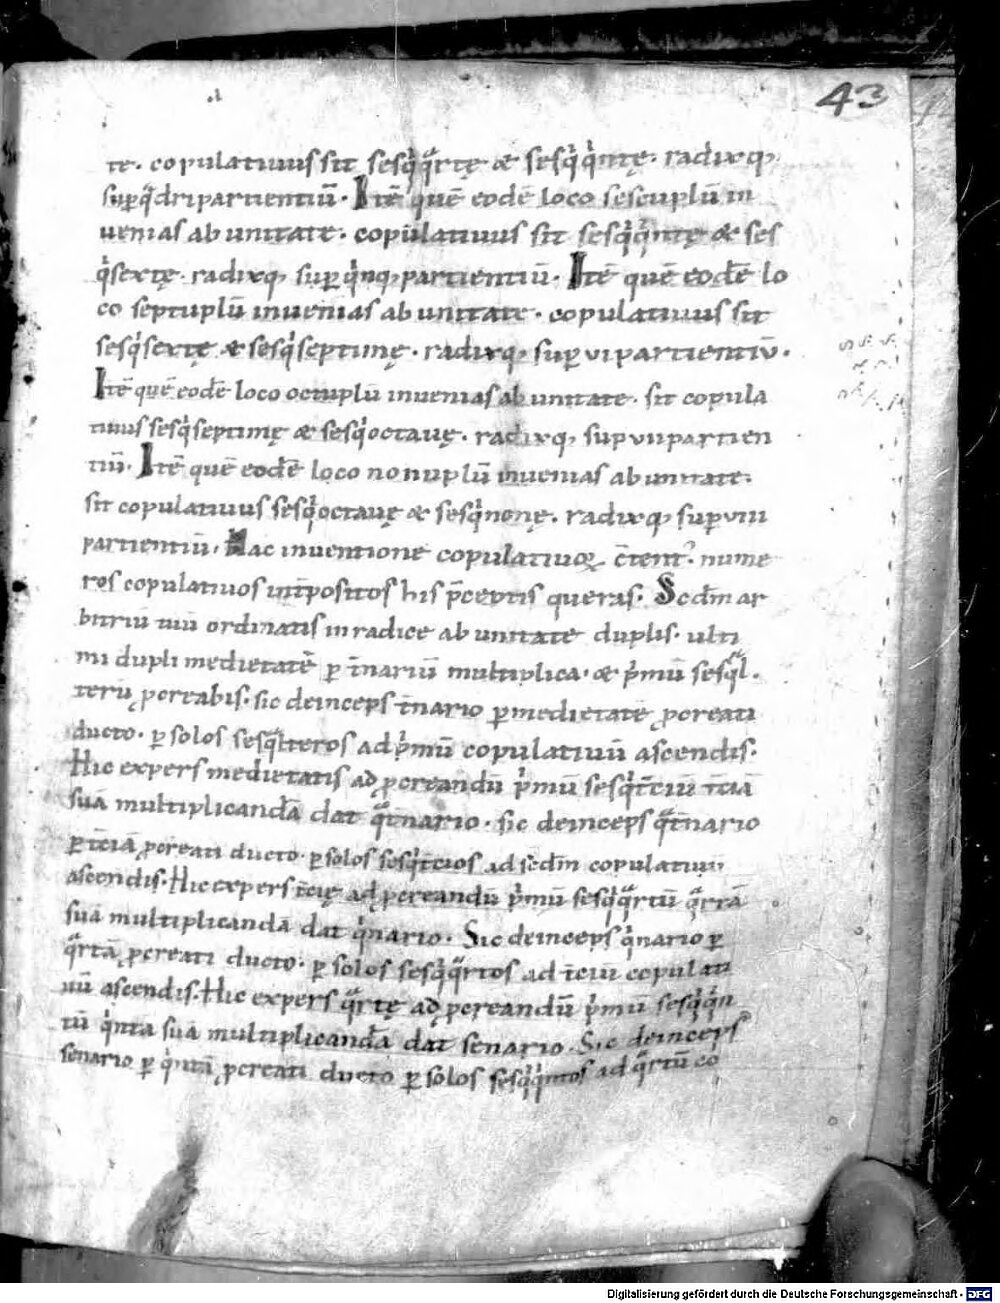 43
te. copulatiuus sit sesq̍qͣrtę & sesq̍q̍ntę. radixq;
sup̱qͣdripartientiū. Itē quē eodē loco sescuplū in
uenias ab unitate. copulatiuus sit sesq̍q̍ntę & ses
q̍sextę. radixq; sup̱ q̍nq;partientiū. Itē quē eodē lo
co septuplū inuenias ab unitate. copulatiuus sit
sesq̍sextę & sesq̍septimę. radixq; sup̱ vi partientiū.
Itē quē eodē loco octuplū inuenias ab unitate. sit copula
tiuus sesq̍septimę & sesq̍octauę. radixq; sup̱ vii partien
tiū. Itē quē eodē loco nonuplū inuenias ab unitate.
sit copulatiuus sesq̍octauę & sesq̍nonę. radixq; sup̱ viii
partientiū. Hac inuentione copulatiuoꝝ nume
ros copulatiuos int̄positos his p̄ceptis queras. Scd̄m ar
bitriū tuū ordinatis in radice ab unitate duplis. ulti
mi dupli medietatē p̱ t̄nariū multiplica. & p̍mū sesq̍l
terū ꝓcreabis. sic deinceps t̄nario p̱ medietatē ꝓcreati
ducto. p̱ solos sesq̍lteros ad p̍mū copulatiuū ascendis.
Hic expers medietatis ad ꝓcreandū p̍mū sesq̍t̄ciū t̄ciā
suā multiplicandā dat qͣt̄nario. Sic deinceps qͣt̄nario
p̱ t̄ciā ꝓcreati ducto. p̱ solos sesq̍t̄cios ad scd̄m copulatiuū
ascendis. Hic expers t̄cię ad ꝓcreandū p̍mū sesq̍qͣrtū qͣrtā
suā multiplicandā dat q̍nario. Sic deinceps q̍nario p̱
qͣrtā ꝓcreati ducto. p̱ solos sesq̍qͣrtos ad t̄ciū copulati
uū ascendis. Hic expers qͣrtę ad ꝓcreandū p̍mū sesq̍q̍n
tū q̍ntā suā multiplicandā dat senario. Sic deinceps
senario p̱ q̍ntā ꝓcreati ducto p̱ solos sesq̍q̍ntos ad qͣrtū co
Digitalisierung gefördert durch die Deutsche Forschungsgemeinschaft - DFG